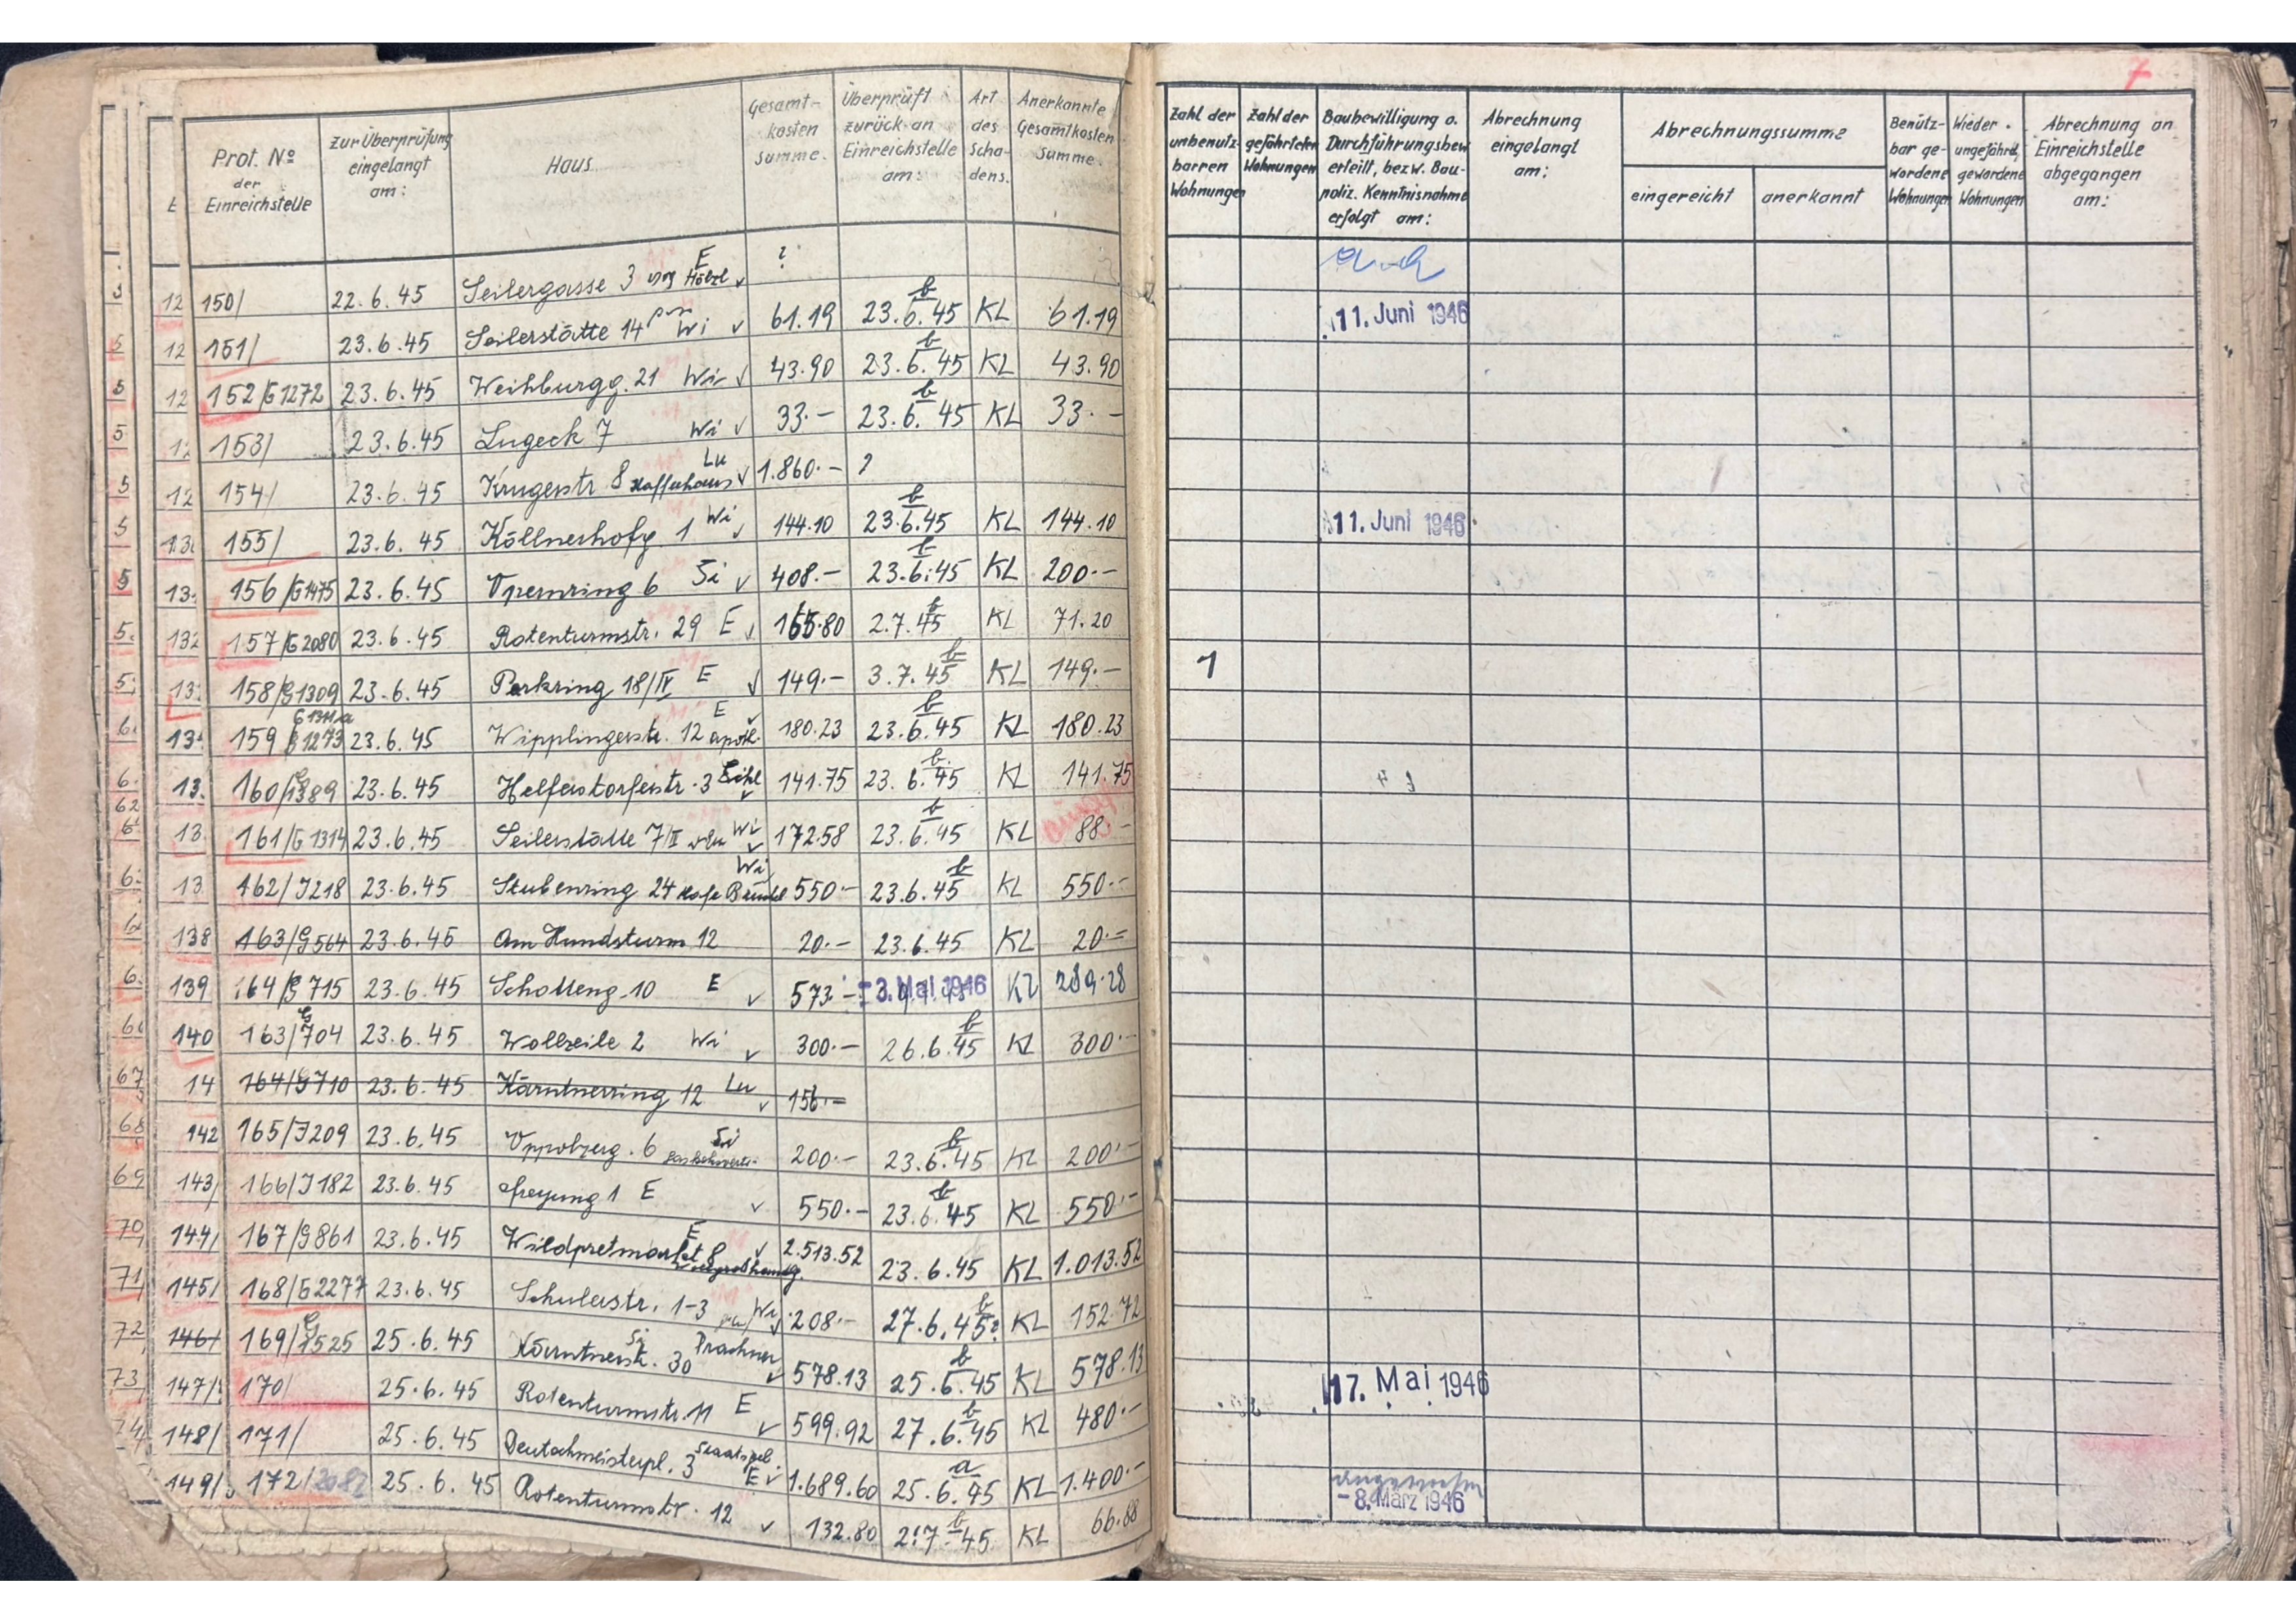 Prot. Nº der Einreichstelle | Zur Überprüfung eingelangt am: | Haus. | Gesamt-kosten summe. | Überprüft zurück an Einreichstelle am: | Art des Scha-dens. | Anerkannte Gesamtkosten Summe. | Zahl der unbenutz-barren Wohnungen | Zahl der gefährteten Wohnungen | Baubewilligung o. Durchführungsbew. erteilt, bezw. Bau-poliz. Kenntnisnahme erfolgt am: | Abrechnung eingelangt am: | Abrechnungssumme eingereicht | anerkannt | Benütz-bar ge-wordene Wohnungen | Wieder ungefährd. gewordene Wohnungen | Abrechnung an Einreichstelle abgegangen am:
7
12 150/ 22.6.45 Seilergasse 3 E ?
12 151/ 23.6.45 Seilerstätte 14 Wi 61.19 23.6.45 b KL 61.19 11. Juni 1946
12 152/G1272 23.6.45 Weihburgg. 21 Wi 43.90 23.6.45 b KL 43.90
12 153/ 23.6.45 Lugeck 7 Wi 33.- 23.6.45 b KL 33.-
12 154/ 23.6.45 Krugerstr 8 Kaffeehaus Lu 1.860.- ?
13 155/ 23.6.45 Köllnerhofg. 1 Wi 144.10 23.6.45 b KL 144.10 11. Juni 1946
13 156/G1475 23.6.45 Opernring 6 Si 408.- 23.6.45 b KL 200.-
132 157/G2080 23.6.45 Rotenturmstr. 29 E 165.80 2.7.45 b KL 71.20
13 158/G1309 23.6.45 Parkring 18/IV E 149.- 3.7.45 b KL 149.- 1
13 159 G1273 23.6.45 Wipplingerstr. 12 Apoth. E 180.23 23.6.45 b KL 180.23
13 160/G1389 23.6.45 Helferstorferstr. 3 141.75 23.6.45 b KL 141.75
13 161/G1314 23.6.45 Seilerstätte 7/II Wi 172.58 23.6.45 b KL 88.-
13 162/J218 23.6.45 Stubenring 24 Wi 550.- 23.6.45 b KL 550.-
138 163/G564 23.6.45 Am Hundsturm 12 20.- 23.6.45 KL 20.-
139 164/G715 23.6.45 Schotteng. 10 E 573.- - 3. Mai 1946 KL 289.28
140 163/G704 23.6.45 Wollzeile 2 Wi 300.- 26.6.45 b KL 300.-
14 164/G710 23.6.45 Kärntnerring 12 Lu 156.-
142 165/J209 23.6.45 Oppolzerg. 6 Si 200.- 23.6.45 b KL 200.-
143/ 166/J182 23.6.45 Freyung 1 E 550.- 23.6.45 b KL 550.-
144/ 167/G861 23.6.45 Wildpretmarkt 8 E 2.513.52 23.6.45 KL 1.013.52
145/ 168/G2277 23.6.45 Schulerstr. 1-3 Wi 208.- 27.6.45 b KL 152.72
146/ 169/G1525 25.6.45 Kärntnerstr. 30 Si Prachner 578.13 25.6.45 b KL 578.13
147/ 170/ 25.6.45 Rotenturmstr. 11 E 599.92 27.6.45 b KL 480.- 17. Mai 1946
148/ 171/ 25.6.45 Deutschmeisterpl. 3 E 1.689.60 25.6.45 a KL 1.400.-
149/ 172/2082 25.6.45 Rotenturmstr. 12 132.80 2.7.45 b KL 66.88 angewiesen - 8. März 1946